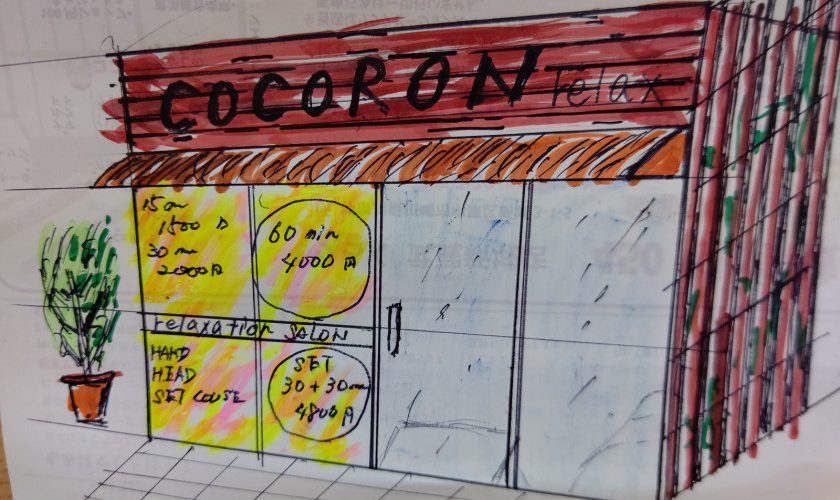 COCORON relax
15m
1500円
30m
2000円
60 min
4000円
relaxation SALON
HAND
HEAD
SET COUSE
SET
30+30m
4800円